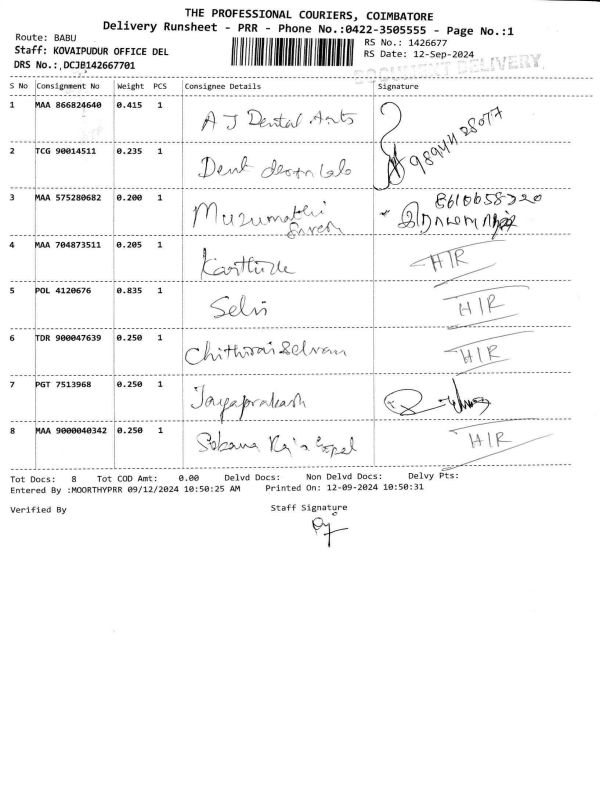 THE PROFESSIONAL COURIERS, COIMBATORE
Delivery Runsheet - PRR - Phone No.:0422-3505555 - Page No.:1
Route: BABU
RS No.: 1426677
Staff: KOVAIPUDUR OFFICE DEL
RS Date: 12-Sep-2024
DRS No.: DCJB142667701
DOCUMENT DELIVERY
S No Consignment No Weight PCS Consignee Details Signature
1 MAA 866824640 0.415 1 A J Dental Arts 98944 28077
2 TCG 90014511 0.235 1 Dent
3 MAA 575280682 0.200 1 8610658320
4 MAA 704873511 0.205 1 H/R
5 POL 4120676 0.835 1 Selvi H/R
6 TDR 900047639 0.250 1 Chithiraiselvan H/R
7 PGT 7513968 0.250 1 Jayaprakash
8 MAA 9000040342 0.250 1 H/R
Tot Docs: 8 Tot COD Amt: 0.00 Delvd Docs: Non Delvd Docs: Delvy Pts:
Entered By :MOORTHYPRR 09/12/2024 10:50:25 AM Printed On: 12-09-2024 10:50:31
Verified By Staff Signature